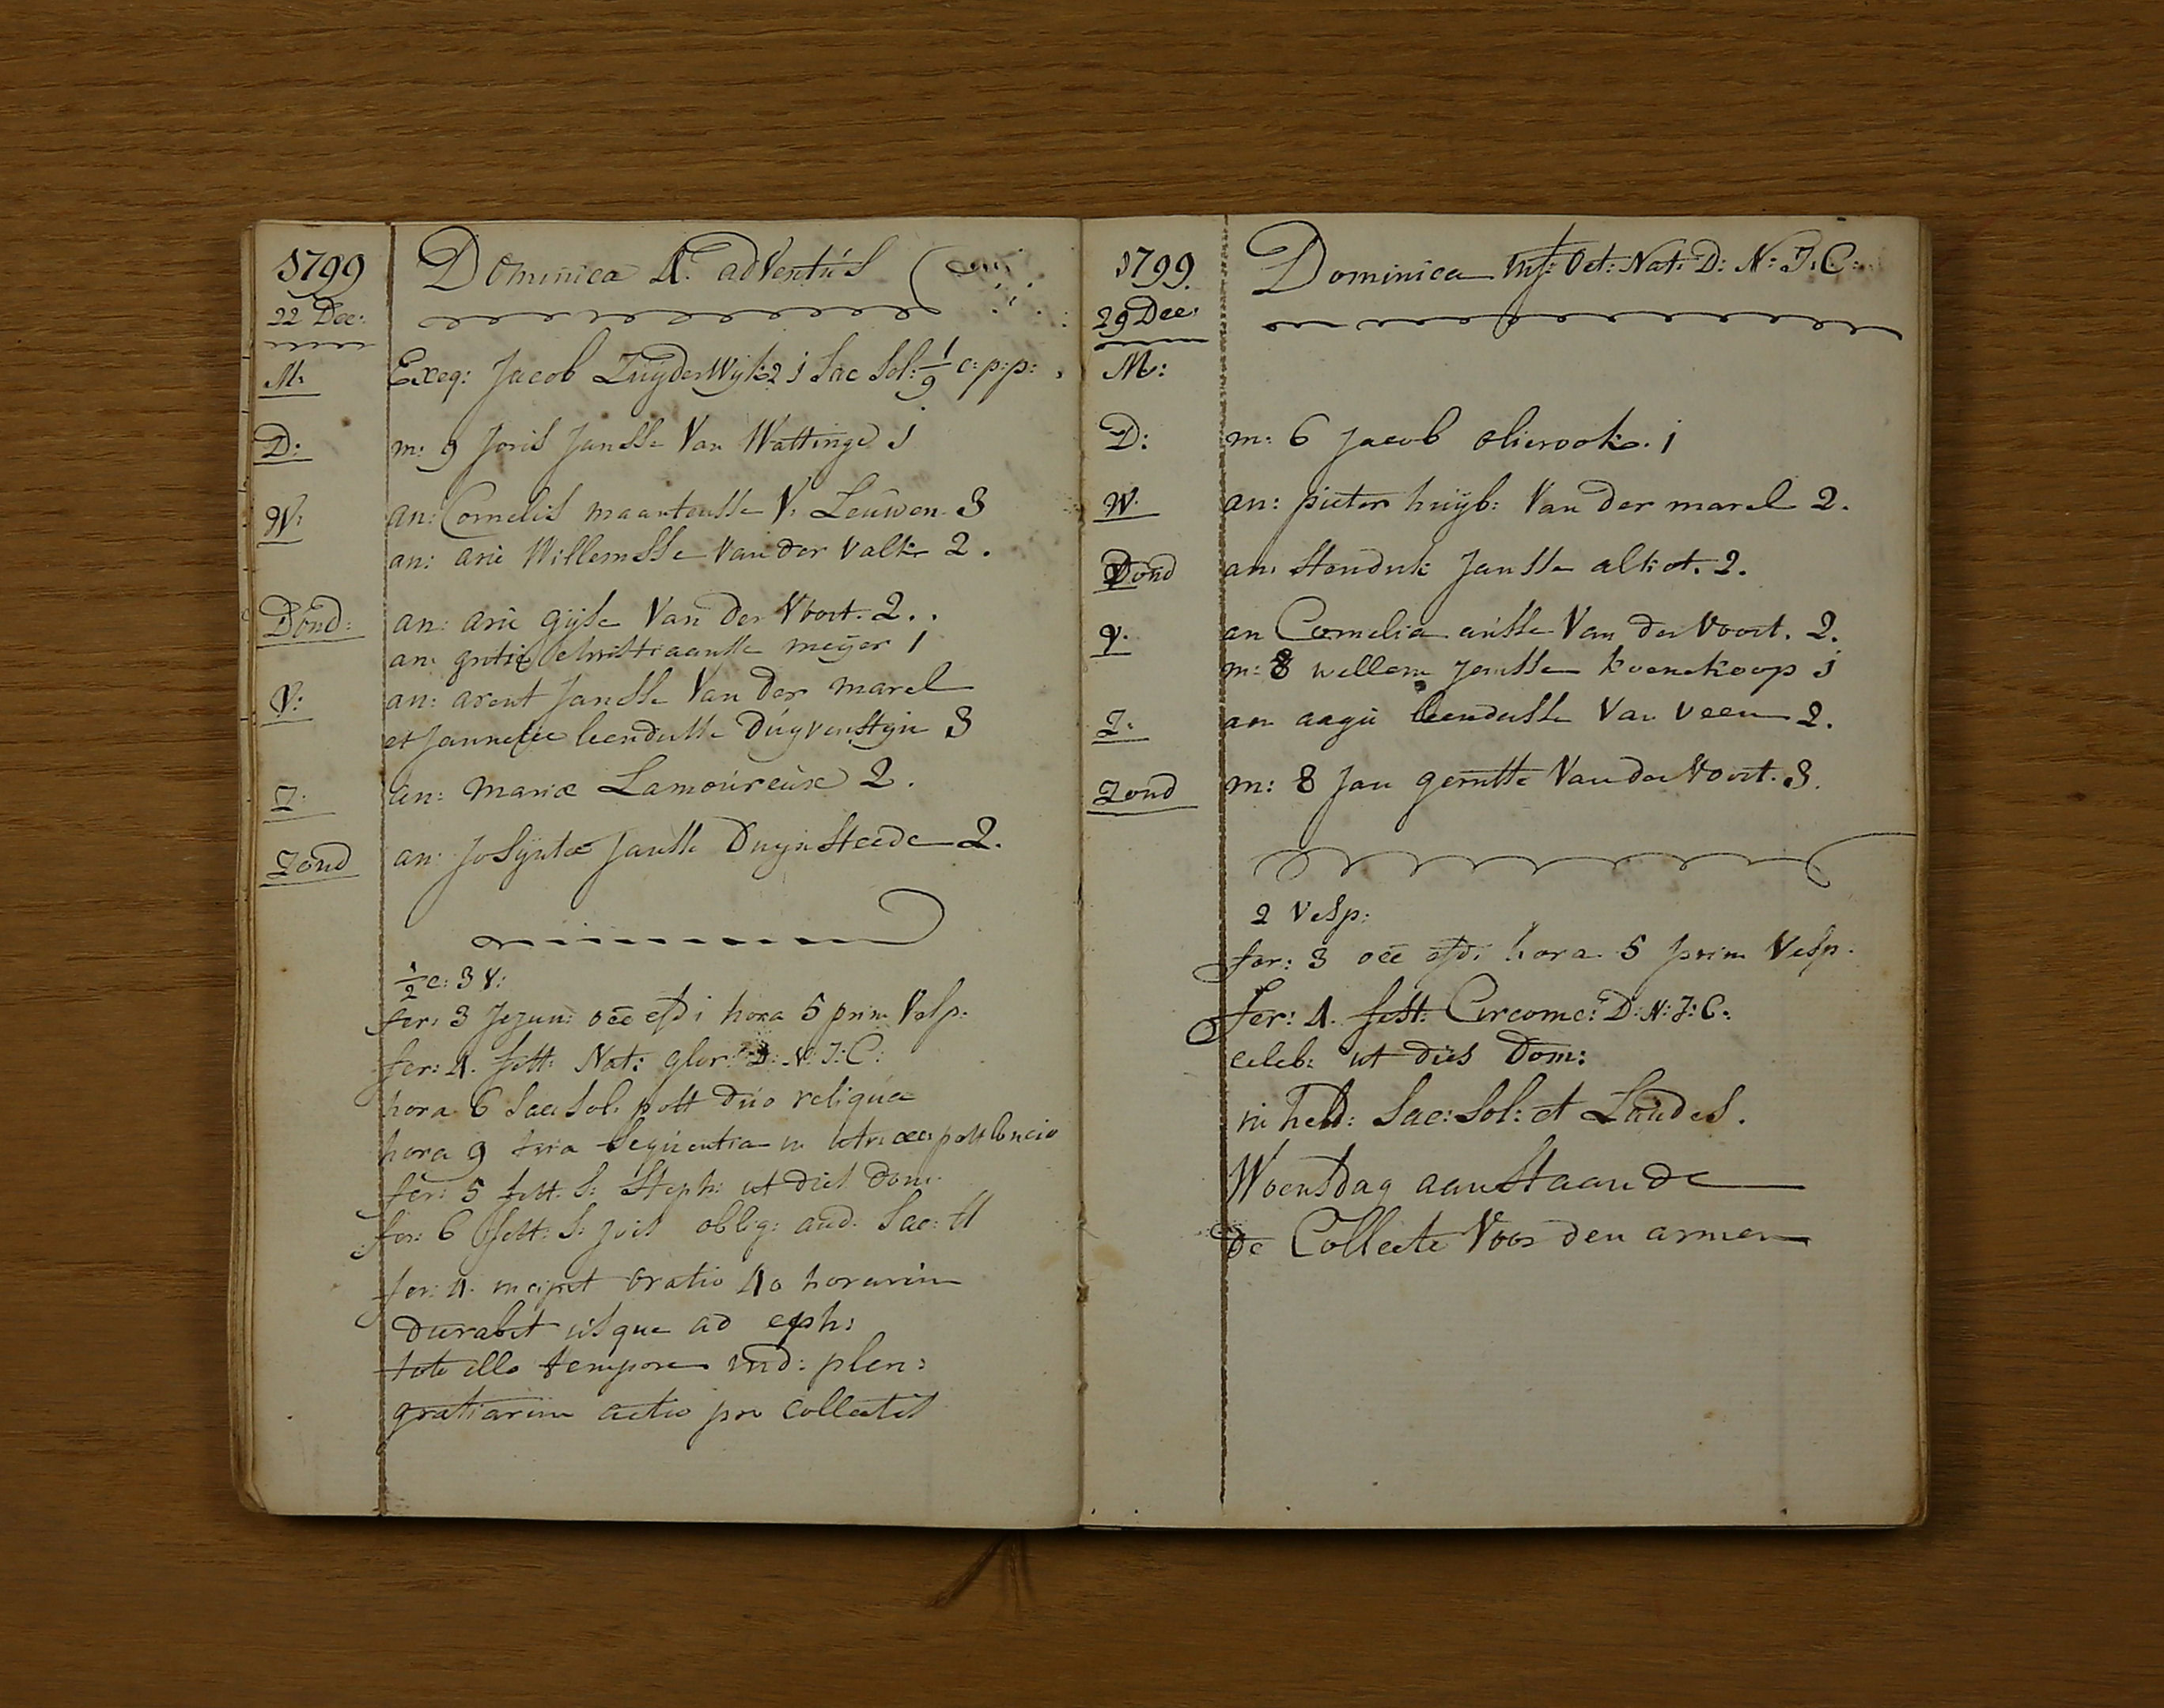 1799 Dominica 4. adventus
22 Dec:
M: Exeq: Jacob ZuyderWyk 2 j Sac Sol: 1/9 c: p: p:
D: m: 9 Joris Jansse Van Wattinge j
W: an: Cornelis maartensse V: Leuwen 3
an: arie Willemsse Van der Valk 2.
Dond: an: arie gijse Van der Voort. 2..
an: grietie christiaansse meijer 1
V: an: arent Jansse Van der marel
et Jannetie leendertse Duyvenstyn 3
Z: an: Mariæ Lamoureux 2.
Zond an: Josyntæ Jansse Duynsteede 2.
1/2 c: 3 V:
fer: 3 Jejun: occ esd i hora 5 prim Vesp.
fer: 4. fest: Nat: glor: D: N: J: C:
hora 6 Sac Sol: post duo reliqua
hora 9 tria Sequentia in post concio
fer: 5 fest. S: Steph: ut dies Dom:
fer: 6 fest: S: Jois oblig: aud. Sac: tt
fer: 4. incipit oratio 40 horarum
Durabit usque ad eph:
toto illo tempore ind: plen:
gratiarum actio pro Collectis
1799 Dominica Inf: Oct: Nat: D: N: J: C:
29 Dec:
M:
D: m: 6 Jacob olierook. j
W. an: pieter huijb: Van der marel 2.
Dond an: Hendrik Jansse alkot. 2.
V. an Cornelia arisse Van der Voort. 2.
m: 8 willem Jansse koenekoop j
Z: an aagie leendertsse Van veen 2.
Zond m: 8 Jan gerritse Van der Voort. 3.
2 Vesp:
fer: 3 occ esdi hora 5 prim Vesp.
fer: 4. fest: Circomc: D: N: J: C:
celeb: ut dies Dom:
in hebd: Sac: Sol: et Laudes.
Woensdag aanstaande
de Collecte Voor den armen